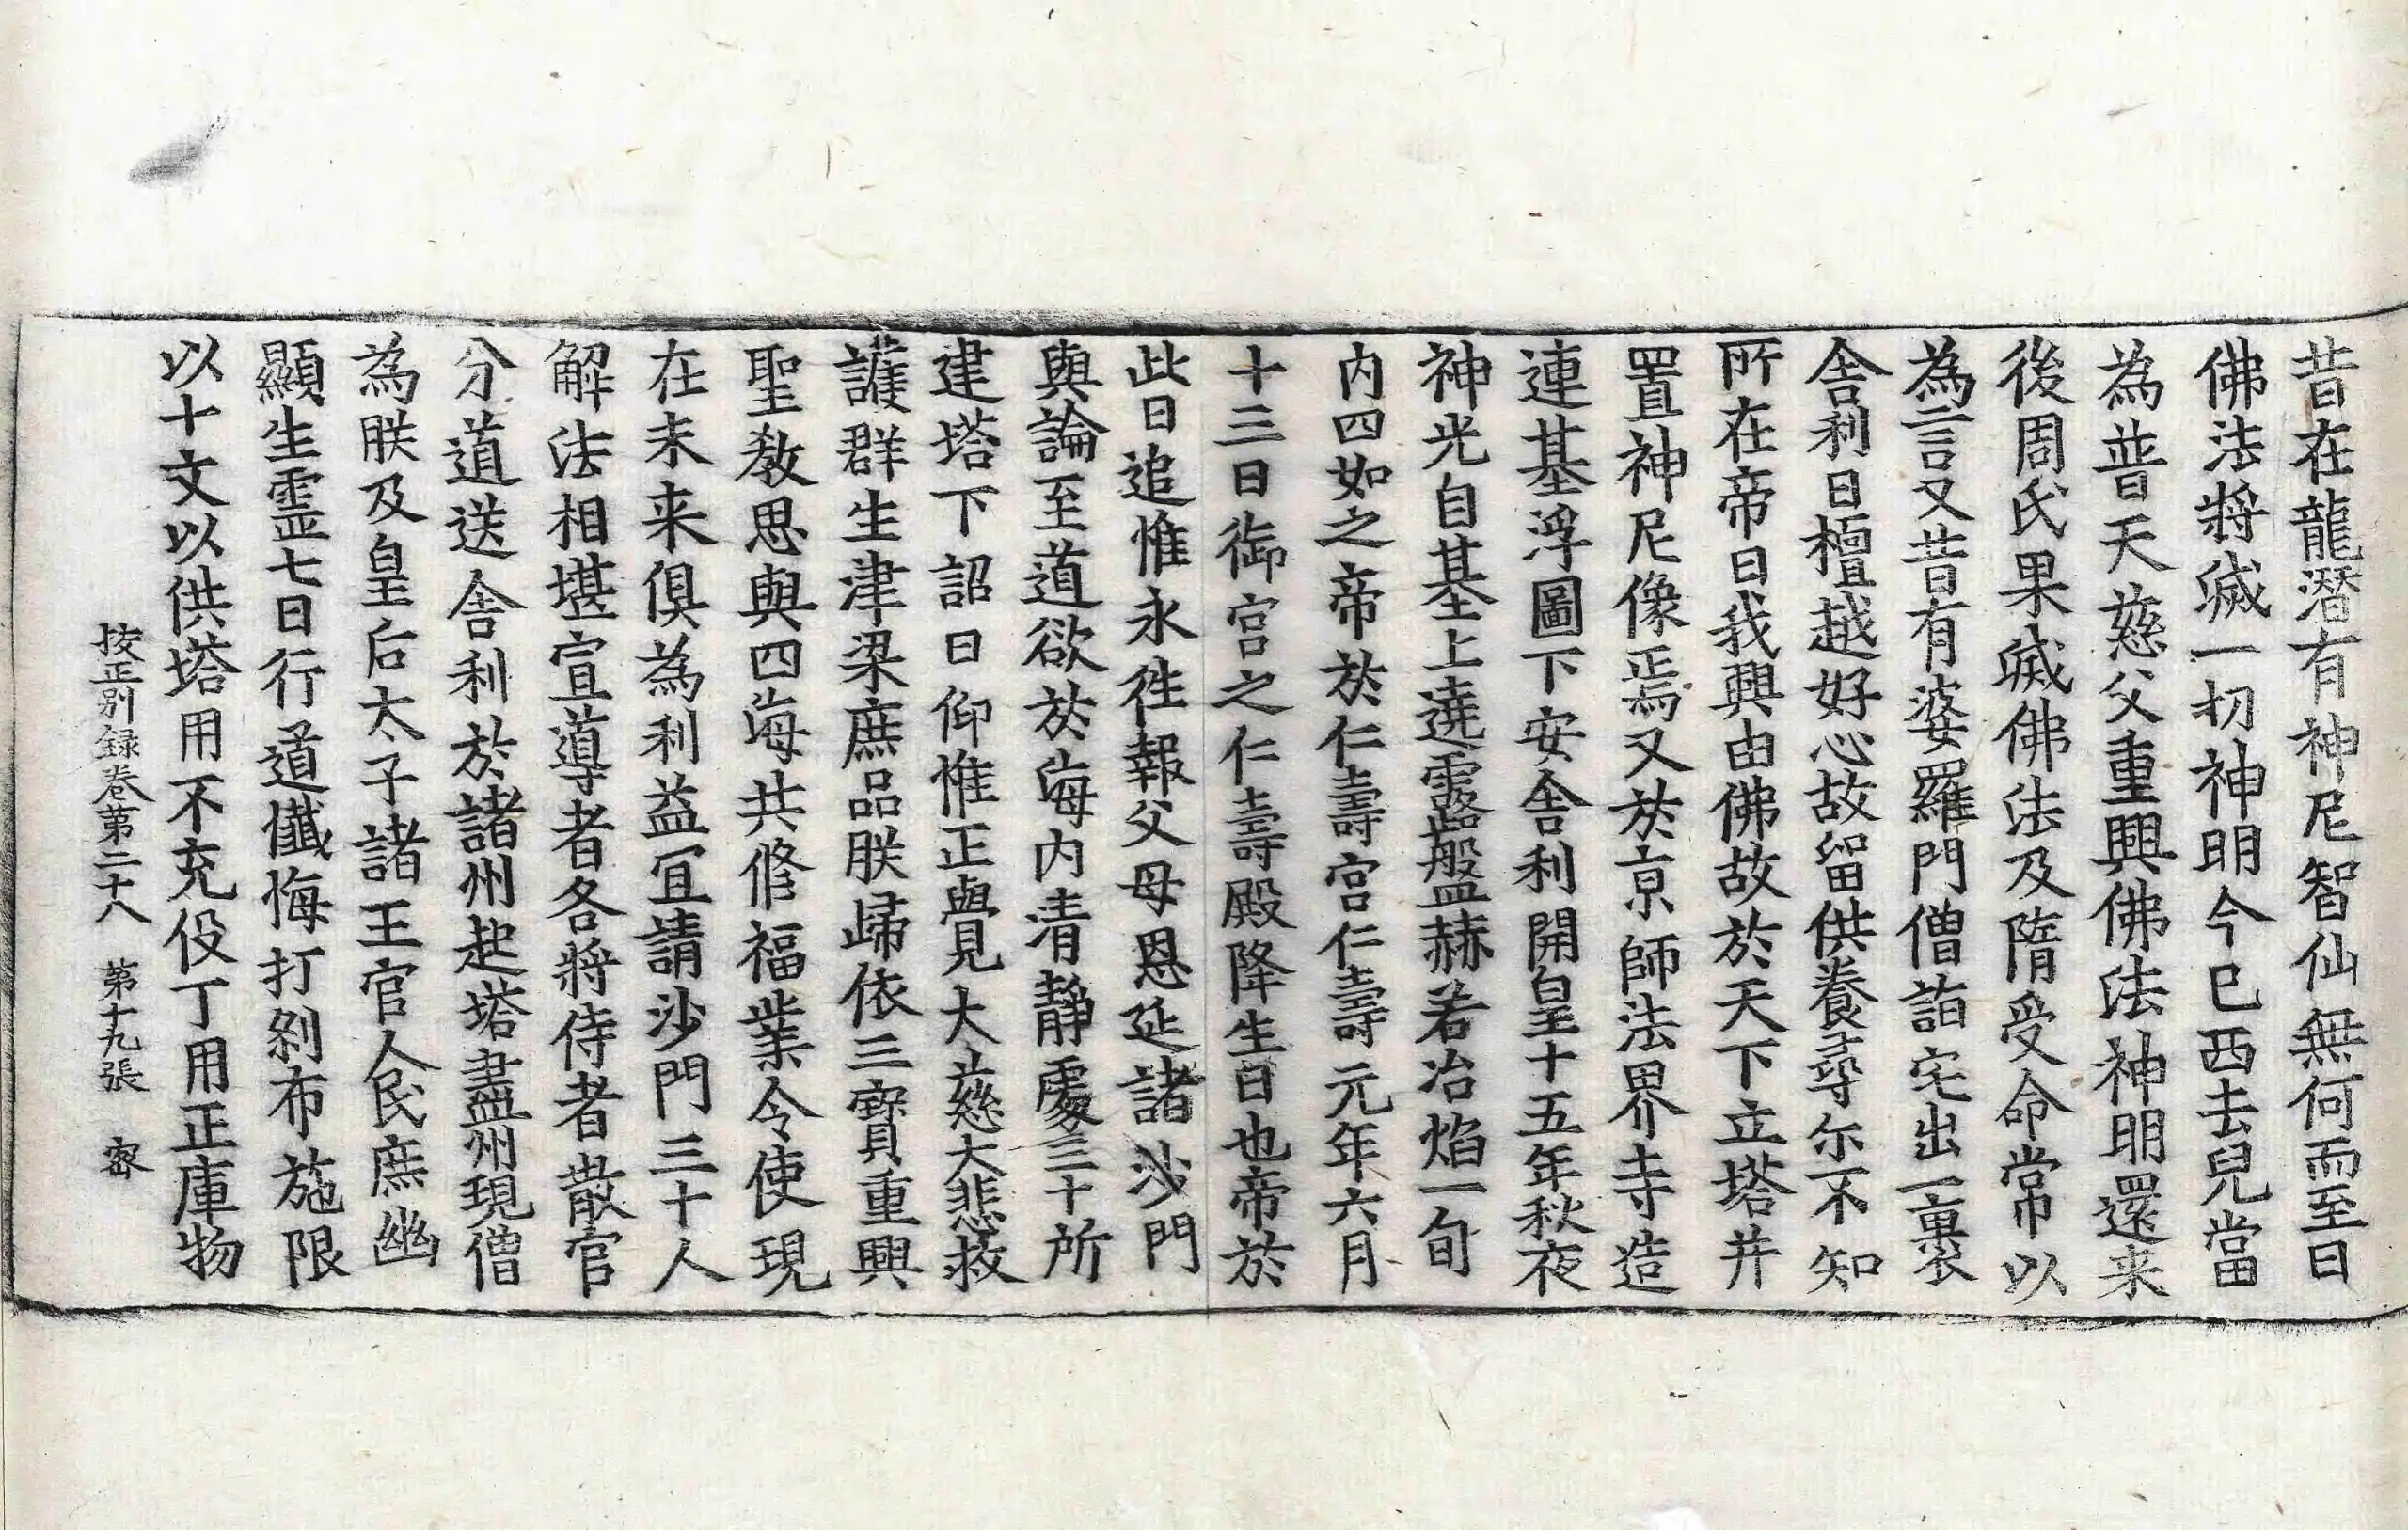 昔在龍潛有神尼智仙無何而至曰
佛法將滅一切神明今已西去兒當
為普天慈父重興佛法神明還来
後周氏果滅佛法及隋受命常以
為言又昔有婆羅門僧詣宅出一裹
舍利曰檀越好心故留供養尋尓不知
所在帝曰我興由佛故於天下立塔并
置神尼像焉又於京師法界寺造
連基浮圖下安舍利開皇十五年秋夜
神光自基上遶露盤赫若冶焰一旬
内四如之帝於仁壽宮仁壽元年六月
十三日御宮之仁壽殿降生日也帝於
此日追惟永徃報父母恩延諸沙門
與論至道欲於海内清靜處三十所
建塔下詔曰仰惟正覺大慈大悲救
護群生津梁庶品朕歸依三寶重興
聖教思與四海共修福業令使現
在未来俱為利益冝請沙門三十人
解法相堪宣導者各將侍者散官
分道送舍利於諸州起塔盡州現僧
為朕及皇后太子諸王官人民庶幽
顯生霊七日行道懺悔打剎布施限
以十文以供塔用不充役丁用正庫物
按正別録卷苐二十八 苐十九張 宻